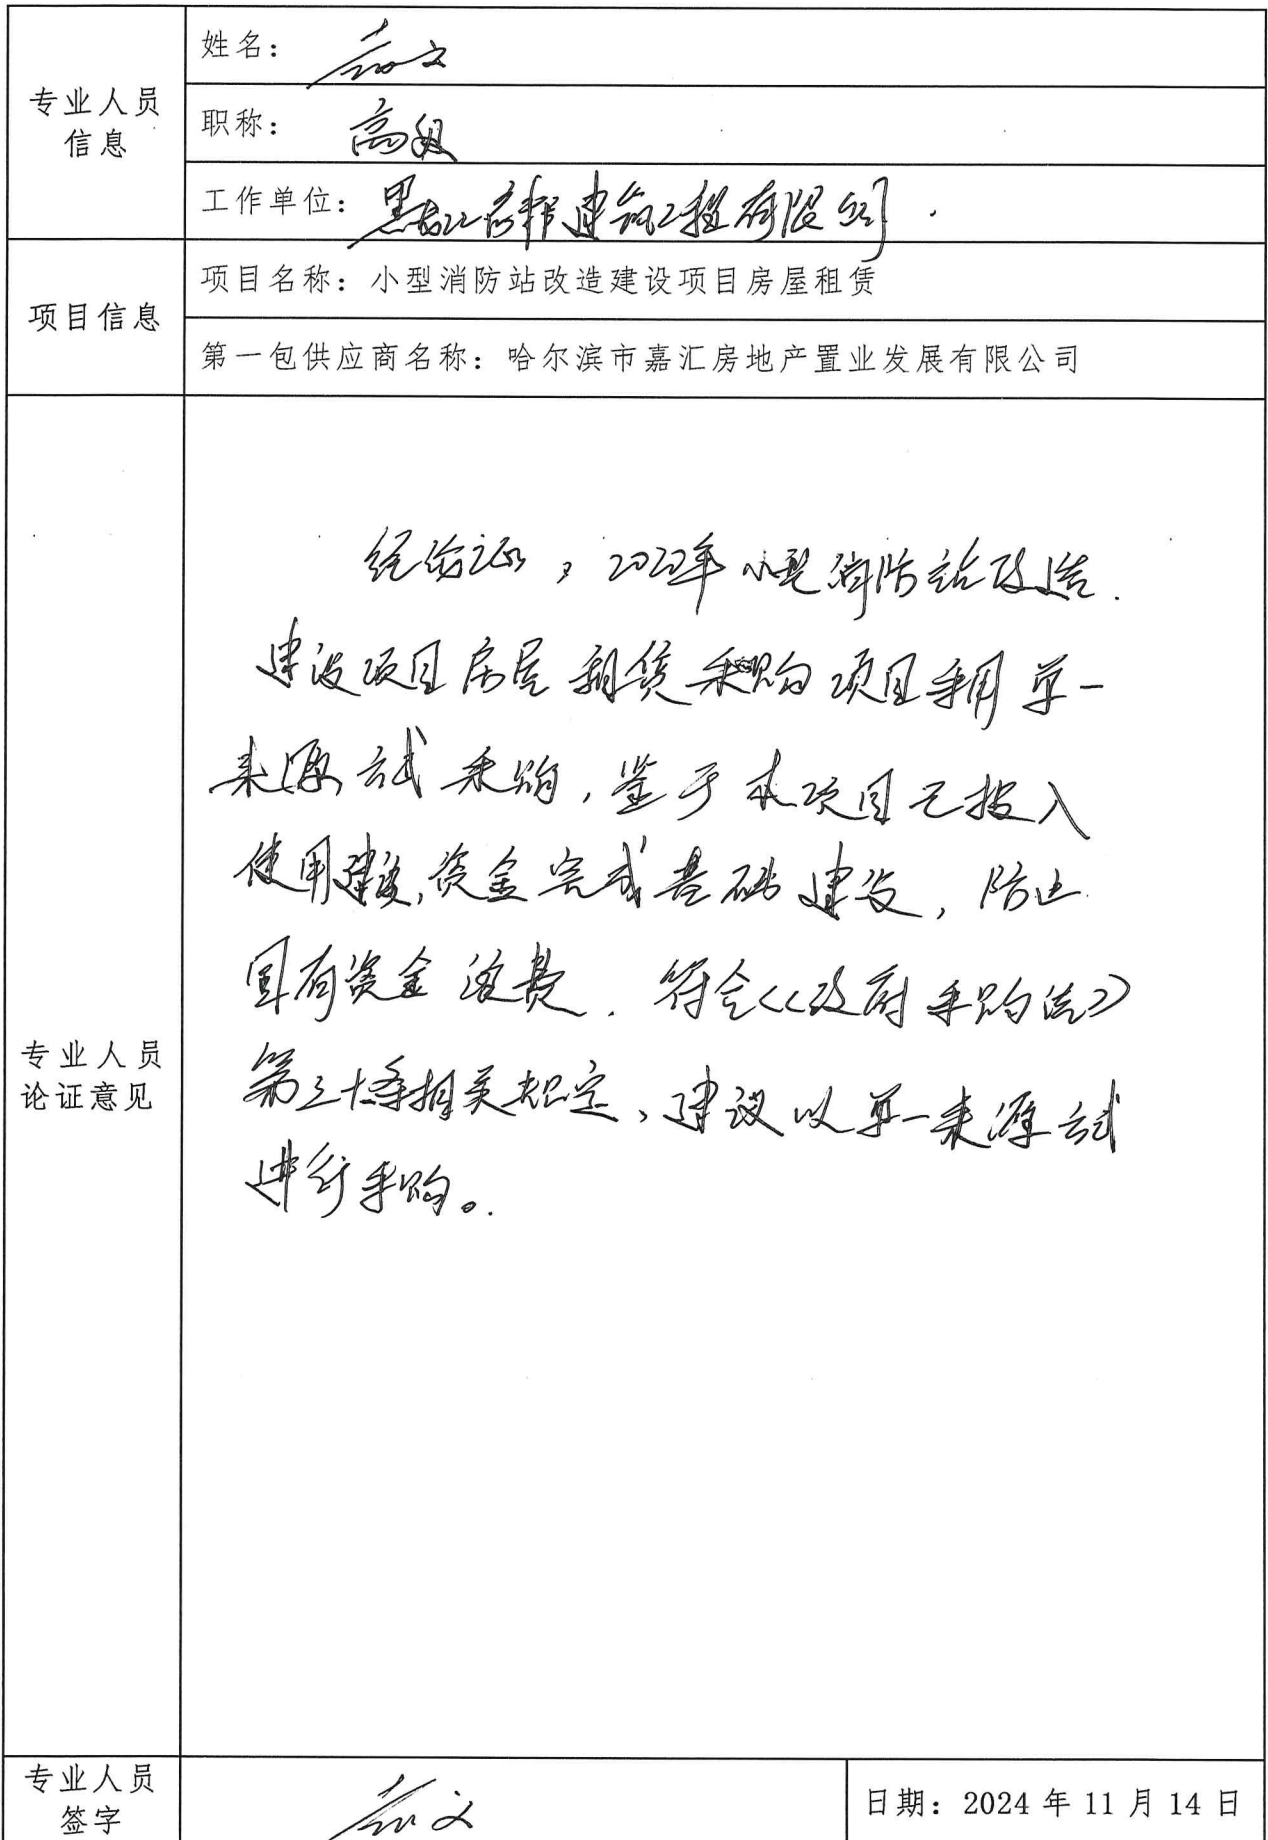 专业人员
信息
姓名:
职称: 高级
工作单位: 黑龙江 建筑工程有限公司
项目信息
项目名称: 小型消防站改造建设项目房屋租赁
第一包供应商名称: 哈尔滨市嘉汇房地产置业发展有限公司
专业人员
论证意见
经论证, 2022年小型消防站改造
建设项目房屋租赁采购项目采用单一
来源方式采购, 鉴于本项目已投入
使用建设, 资金完成基础建设, 防止
国有资金浪费. 符合《政府采购法》
第三十条相关规定, 建议以单一来源方式
进行采购。
专业人员
签字
日期: 2024 年 11 月 14 日